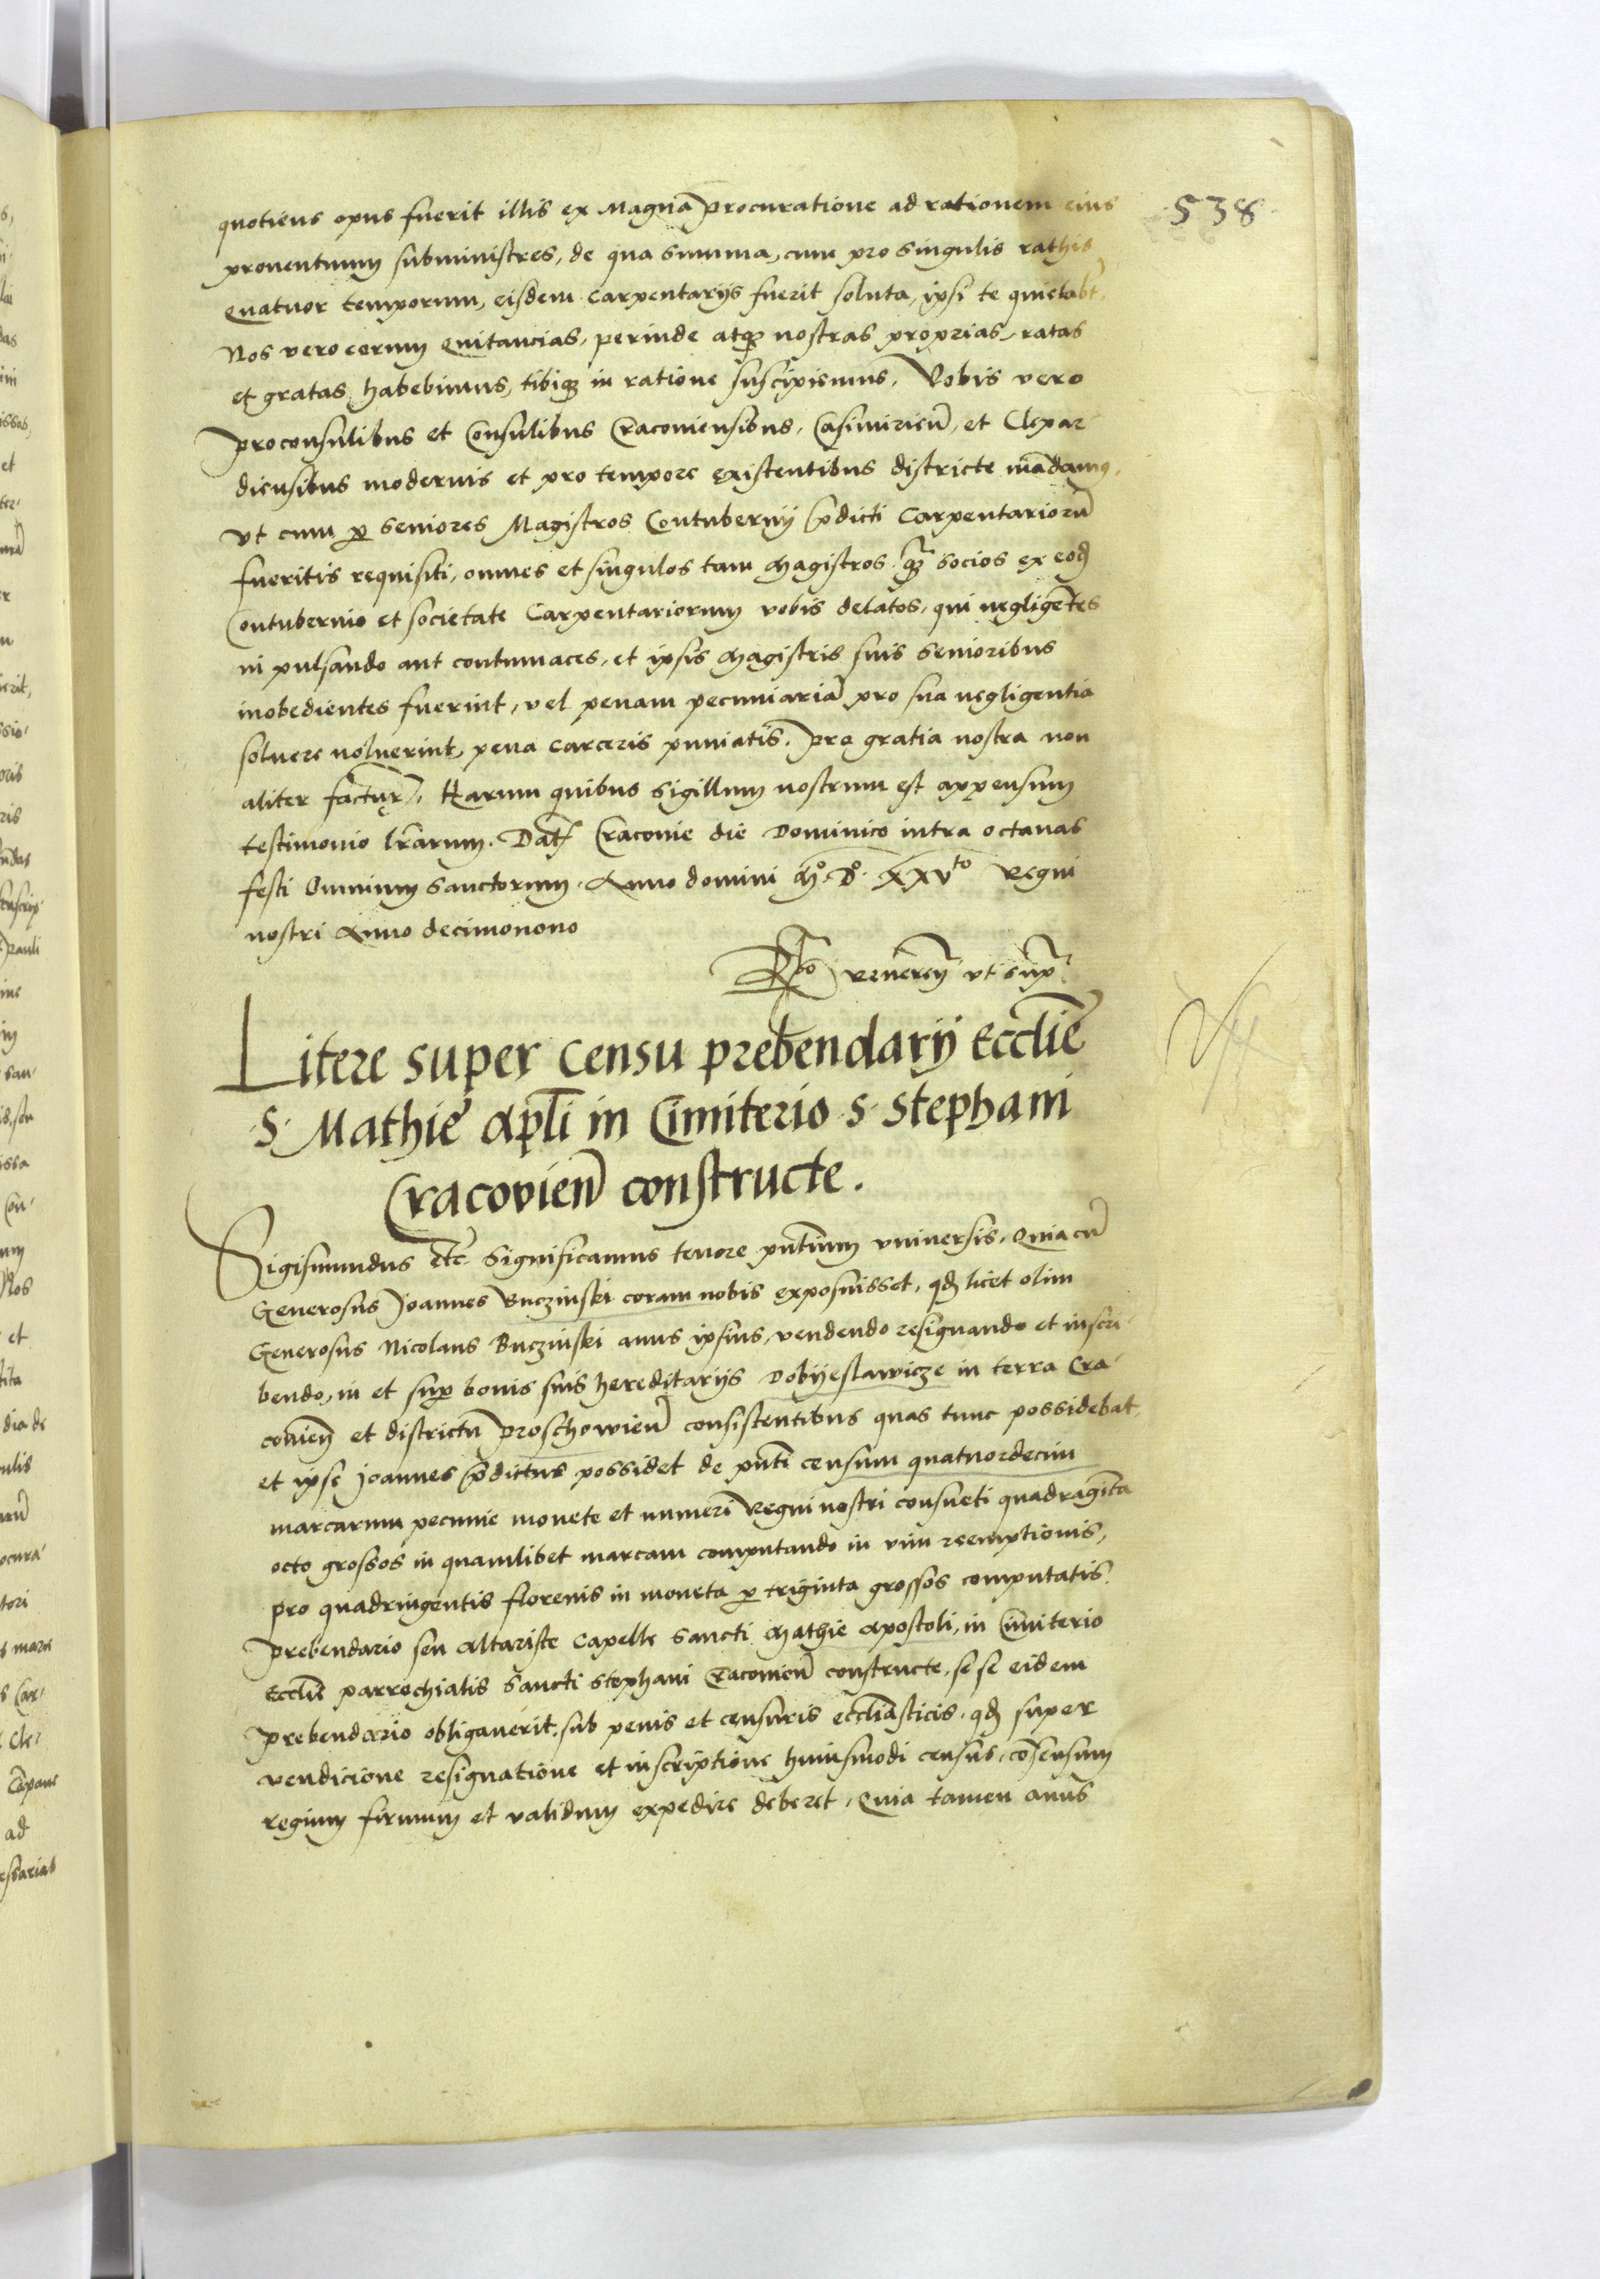 538
quotiens opus fuerit illis ex Magna procuratione ad rationem eius
prouentuum subministres, de qua summa, cum pro singulis rathis
quatuor temporum, eisdem Carpentarijs fuerit soluta, ipsi te quietabt.
Nos vero eorum quitancias, perinde atqz nostras proprias, ratas
et gratas habebimus, tibiqz in ratione suscipiemus. Vobis vero
proconsulibus et Consulibus Cracouiensibus, Casimirien̄, et Clepar-
diensibus modernis et pro tempore existentibus districte mādamus,
vt cum per seniores Magistros Contubernij p̄dicti Carpentariorū
fueritis requisiti, omnes et singulos tam Magistros qz socios ex eod
Contubernio et societate Carpentariorum vobis delatos, qui negligētes
in pulsando aut contumaces, et ipsis Magistris suis senioribus
inobedientes fuerint, vel penam pecuniariā pro sua negligentia
soluere noluerint, pena carceris puniatis. pro gratia nostra non
aliter factur. Harum quibus sigillum nostrum est appensum
testimonio lr̄arum. Dat Cracouie die Dominico intra octauas
festi Omnium Sanctorum. Anno domini Mº. Dº. XXVto Regni
nostri Anno decimonono
Rº reueren ut sup
Litere super Censu prebendarij Eccl̄ie
S. Mathie Apl̄i in Cimiterio S. Stephani
Cracovien̄ constructe.
Sigismundus etc̄ Significamus tenore pn̄tium vniuersis. Quia cū
Generosus Joannes Buczinski coram nobis exposuisset, qd licet olim
Generosus Nicolaus Buczinski auus ipsius, vendendo resignando et inscri-
bendo, in et sup bonis suis hereditarijs Dobyeslawicze in terra Cra-
couien̄ et districtu Proschowien̄ consistentibus quas tunc possidebat,
et ipse Joannes p̄dictus possidet de pn̄ti censum quatuordecim
marcarum pecunie monete et numeri Regni nostri consueti quadragīta
octo grossos in quamlibet marcam computando in vim reemptionis,
pro quadringentis florenis in moneta per triginta grossos computatis
prebendario seu Altariste Capelle Sancti Mathie Apostoli, in Cimiterio
Eccl̄ie parrochialis Sancti Stephani Cracouien̄ constructe, se se eidem
prebendario obligauerit, sub penis et censuris eccl̄iasticis, qd super
vendicione resignatione et inscriptione huiusmodi census, cōsensum
regium firmum et validum expedire deberet, Quia tamen auus